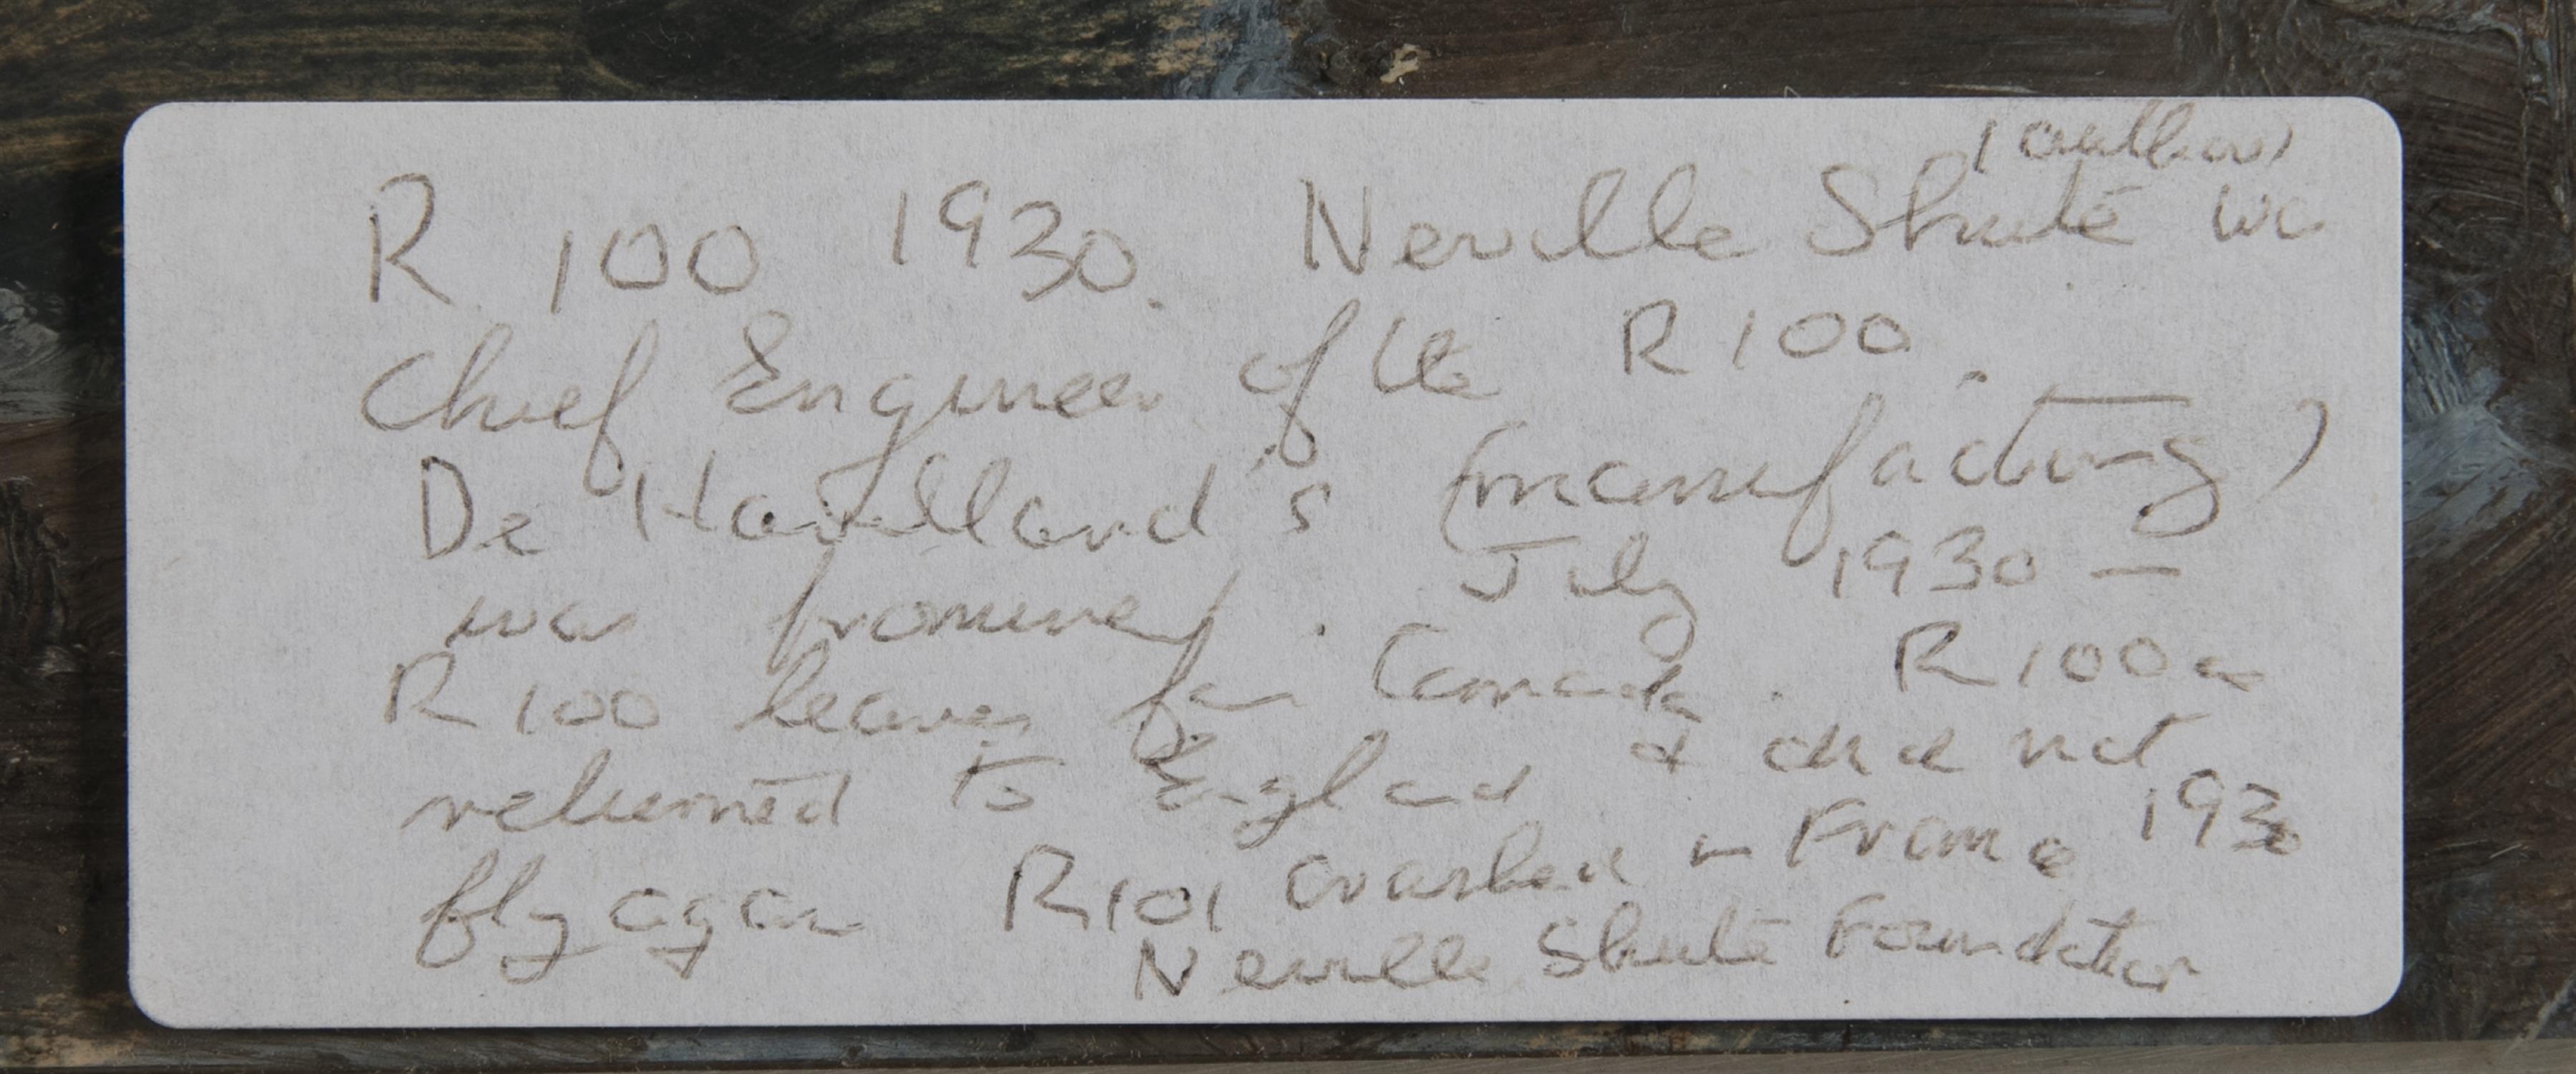 (author)
R 100 1930. Neville Shute was
Chief Engineer of the R100.
De Havilland's (manufacturing)
was prominent. July 1930 —
R100 leaves for Canada. R100
returned to England & did not
fly again R101 crashed in France 1930
Neville Shute Foundation